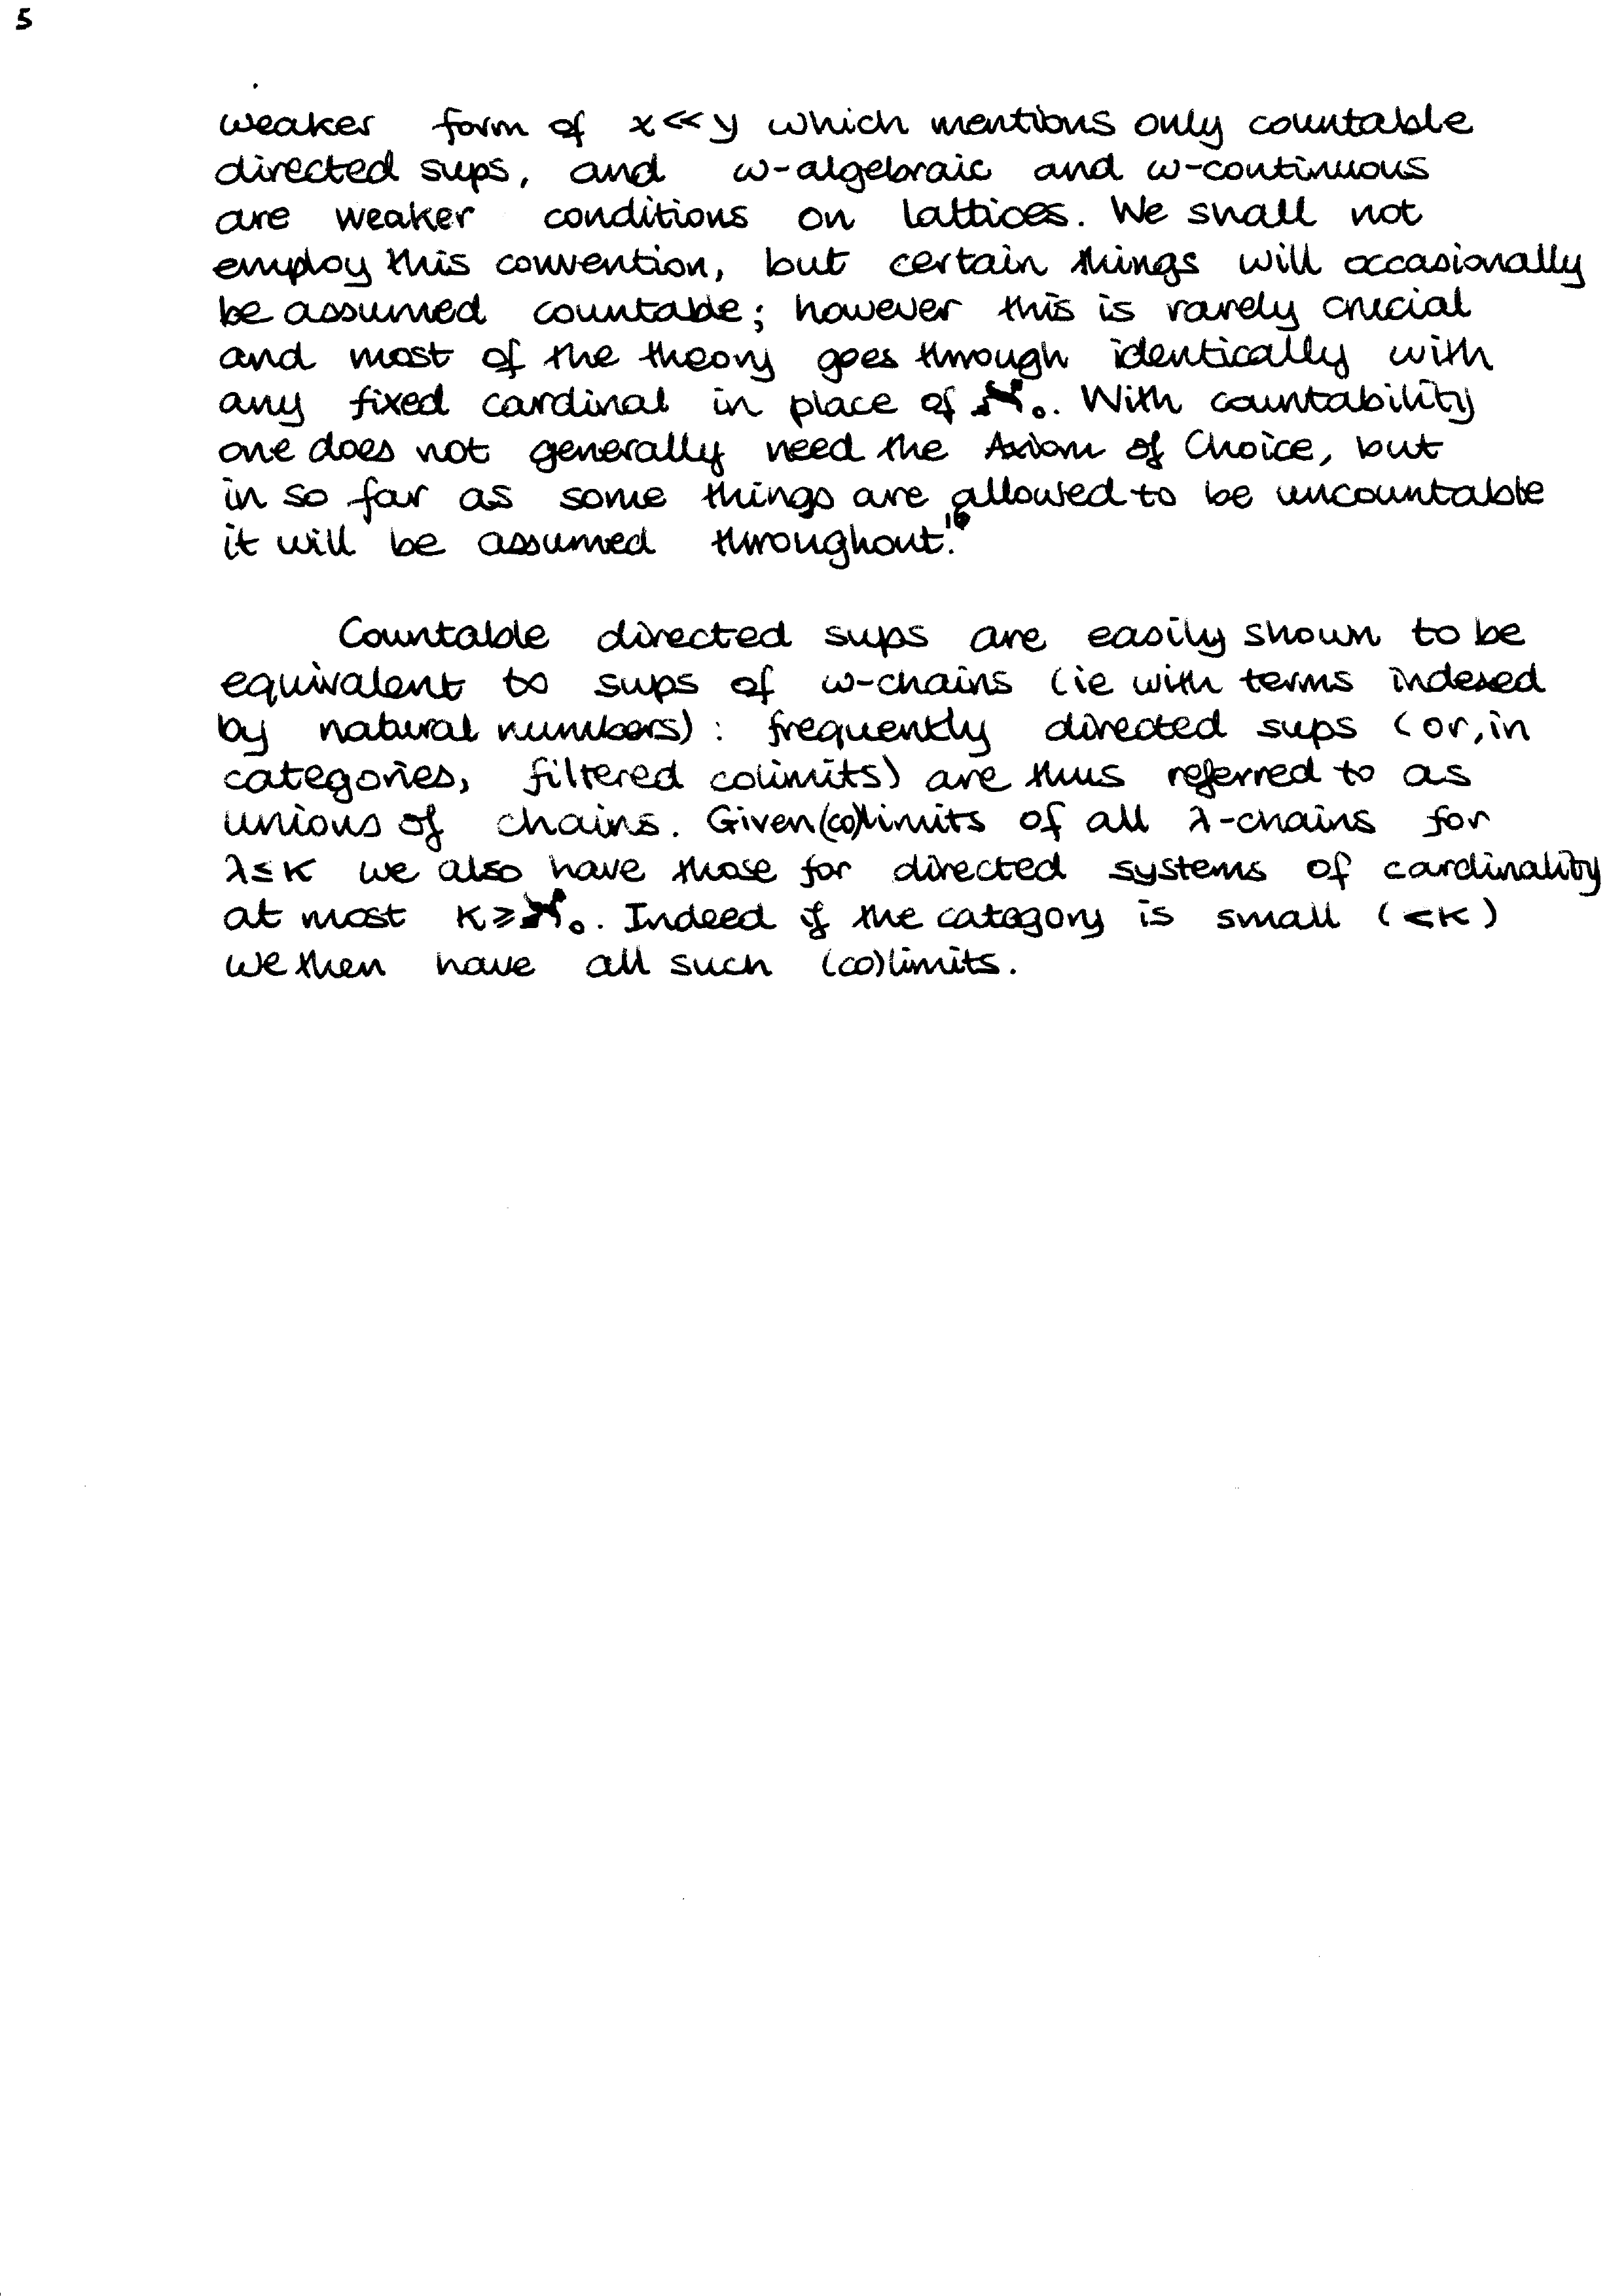 5
weaker form of x≪y which mentions only countable
directed sups, and ω-algebraic and ω-continuous
are weaker conditions on lattices. We shall not
employ this convention, but certain things will occasionally
be assumed countable; however this is rarely crucial
and most of the theory goes through identically with
any fixed cardinal in place of ℵ₀. With countability
one does not generally need the Axiom of Choice, but
in so far as some things are allowed to be uncountable
it will be assumed throughout.¹⁶
Countable directed sups are easily shown to be
equivalent to sups of ω-chains (ie with terms indexed
by natural numbers): frequently directed sups (or, in
categories, filtered colimits) are thus referred to as
unions of chains. Given (co)limits of all λ-chains for
λ≤κ we also have those for directed systems of cardinality
at most κ≥ℵ₀. Indeed if the category is small (<κ)
we then have all such (co)limits.